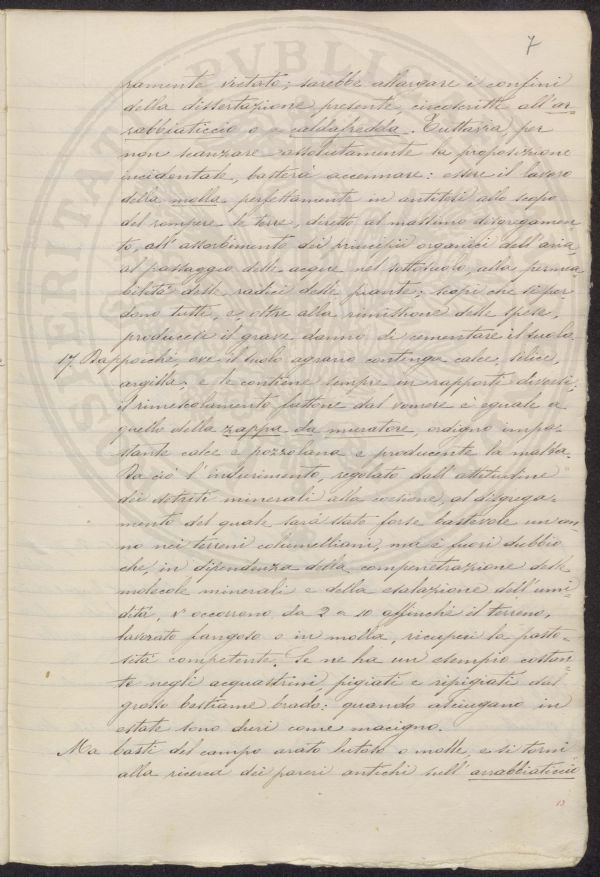 7
ramente vietato; sarebbe allargare i confini
della dissertazione presente, circoscritta all'ar-
rabbiaticcio o a caldafredda. Tuttavia, per
non scanzare assolutamente la proposizione
incidentale, basterà accennare: essere il lavoro
della molla perfettamente in antitesi allo scopo
del rompere le terre, diretto al massimo disgregamen
to, all'assorbimento dei principii organici dell'aria,
al passaggio delle acque nel sottosuolo, alla permea
bilità delle radici delle piante; scopi che si per-
dono tutti, e, oltre alla rimissione delle spese,
producesi il grave danno di cementare il suolo.
17. Dappoichè ove il suolo agrario contenga calce, selice,
argilla, e le contiene sempre in rapporti diversi,
il rimescolamento fattone dal vomere è eguale a
quello della zappa da muratore, ordigno impa-
stante calce e pozzolana e producente la malta.
Da ciò l'indurimento, regolato dall'attitudine
dei detriti minerali alla coesione, al disgrega-
mento del quale sarà stato forse bastevole un an
no nei terreni columelliani, ma è fuori dubbio
che, in dipendenza della compenetrazione delle
molecole minerali e della esalazione dell'umi-
dità, v'occorrono da 2 a 10 affinchè il terreno,
lavorato fangoso o in molla, ricuperi la pasto-
sità competente. Se ne ha un esempio costan-
te negli acquastrini, pigiati e ripigiati dal
grosso bestiame brado: quando asciugano in
estate sono duri come macigno.
Ma basti del campo arato lutoso o molle, e si torni
alla ricerca dei pareri antichi sull'arrabbiaticcio
13